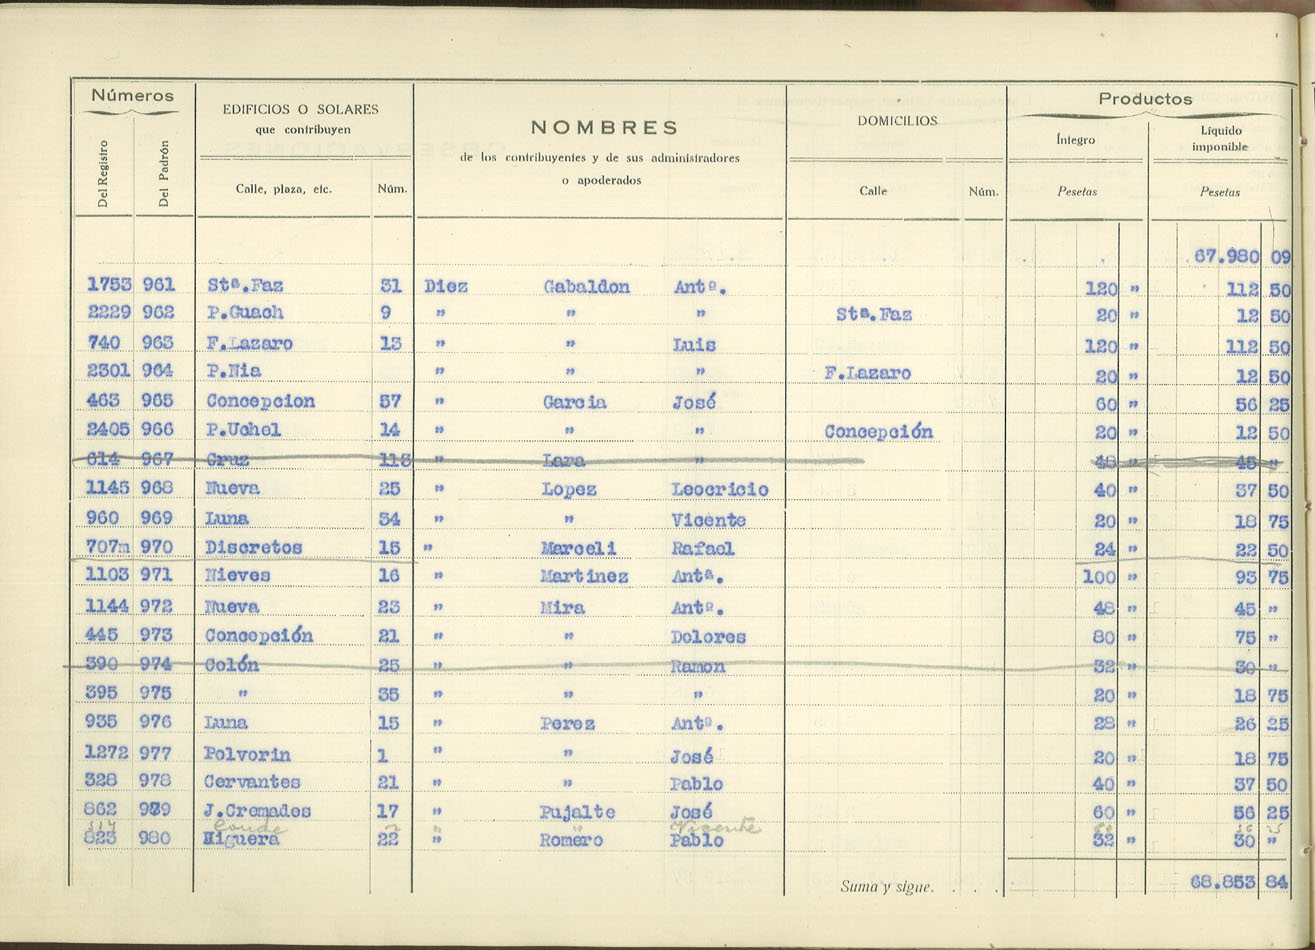 Números
EDIFICIOS O SOLARES
que contribuyen
NOMBRES
de los contribuyentes y de sus administradores
o apoderados
DOMICILIOS
Productos
Íntegro
Líquido
imponible
Del Registro
Del Padrón
Calle, plaza, etc.
Núm.
Calle
Núm.
Pesetas
Pesetas
67.980 09
1753 961 Stª.Faz 31 Diez Gabaldon Antº. 120 " 112 50
2229 962 P.Guach 9 " " " Stª.Faz 20 " 12 50
740 963 F.Lazaro 13 " " Luis 120 " 112 50
2301 964 P.Nia " " " F.Lazaro 20 " 12 50
463 965 Concepcion 57 " Garcia José 60 " 56 25
2405 966 P.Uchel 14 " " " Concepción 20 " 12 50
614 967 Cruz 113 " Lara " 48 " 45 "
1145 968 Nueva 25 " Lopez Leocricio 40 " 37 50
960 969 Luna 34 " " Vicente 20 " 18 75
707m 970 Discretos 15 " Marceli Rafael 24 " 22 50
1103 971 Nieves 16 " Martinez Antª. 100 " 93 75
1144 972 Nueva 23 " Mira Antº. 48 " 45 "
445 973 Concepción 21 " " Dolores 80 " 75 "
390 974 Colón 25 " " Ramon 32 " 30 "
395 975 " 35 " " " 20 " 18 75
935 976 Luna 15 " Perez Antº. 28 " 26 25
1272 977 Polvorin 1 " " José 20 " 18 75
328 978 Cervantes 21 " " Pablo 40 " 37 50
862 979 J.Cremades 17 " Pujalte José 60 " 56 25
Conde " " Vicente
823 980 Higuera 22 " Romero Pablo 32 " 30 "
Suma y sigue. . . . 68.853 84